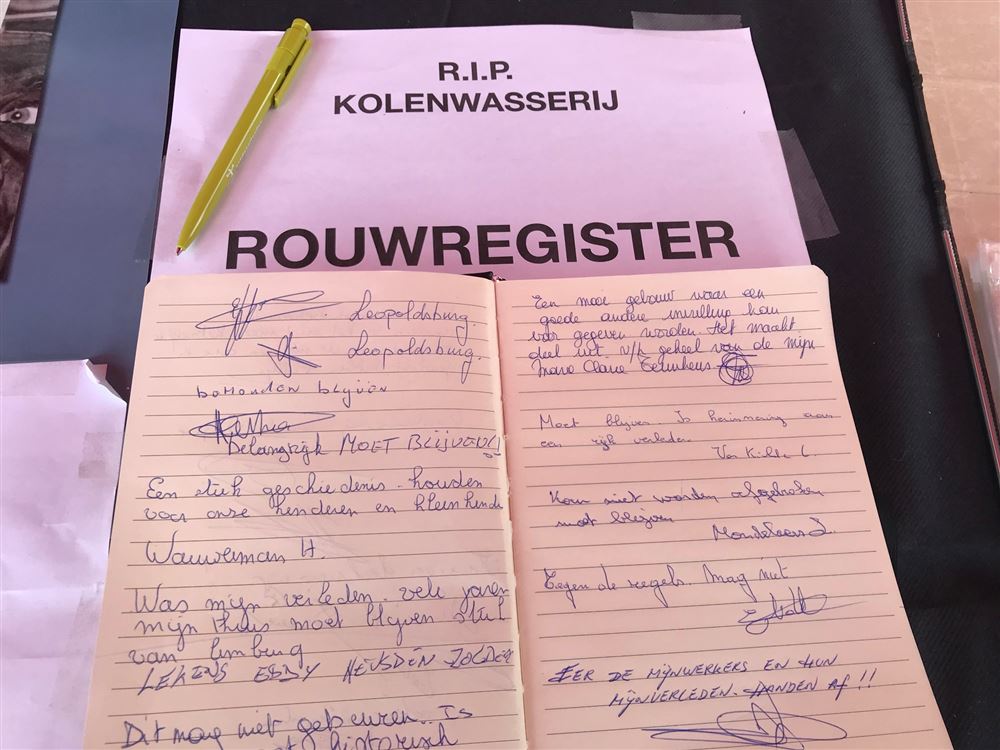 R.I.P.
KOLENWASSERIJ
ROUWREGISTER
Leopoldsburg.
Leopoldsburg.
behouden blijven
Belangrijk MOET BLIJVEN!
Een stuk geschiedenis houden
voor onze kinderen en kleinkinde
Wauwerman H.
Was mijn verleden. vele jaren
mijn thuis moet blijven stuk
van limburg
LEKENS EDDY HEUSDEN ZOLDER
Dit mag niet gebeuren. Is
historisch
Een mooi gebouw waar een
goede andere invulling kan
voor gegeven worden. Het maakt
deel uit v/h geheel van de mijn
Marie Claire
Moet blijven Is herinnering aan
een rijk verleden
Kan niet worden afgebroken
moet blijven
Tegen de regels. Mag niet
EER DE MIJNWERKERS EN HUN
MIJNVERLEDEN. HANDEN AF!!